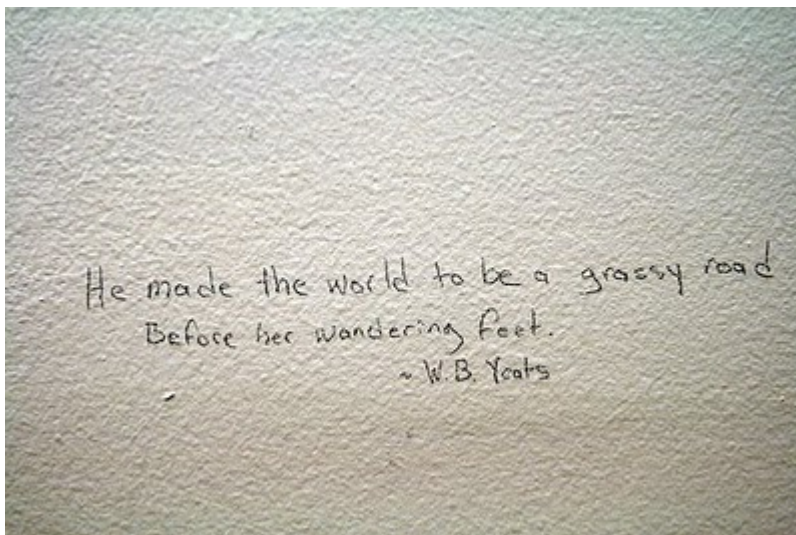 He made the world to be a grassy road
Before her wandering feet.
~ W.B. Yeats